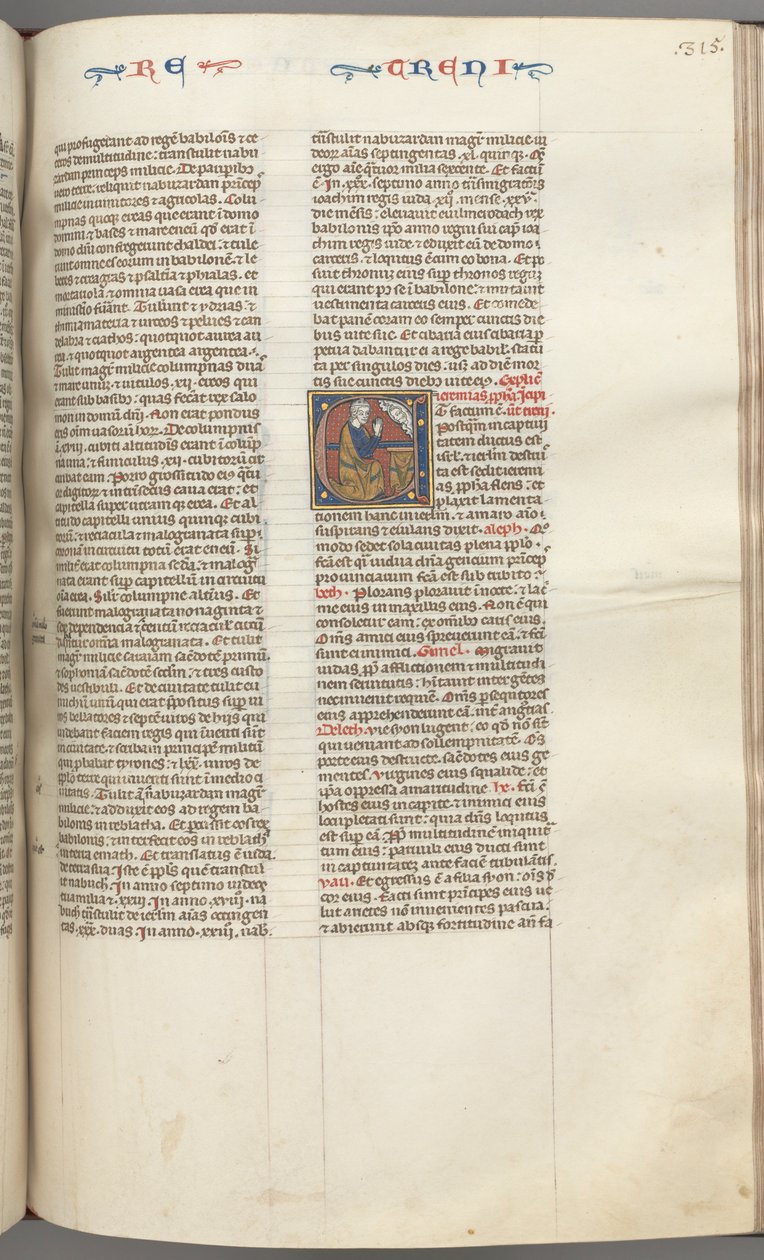 .315.
RE TRENI
qui profugerant ad regē babilois & ce
teros de multitudine: transtulit nabu
zardan princeps milicie. De paupib;
vero terre: reliquit nabuzardan prīcep
milicie vinitores & agricolas. Colu
mpnas quoq; ereas que erant ī domo
domini & bases & mare eneū qd erat ī
domo dnī confregerunt chaldei: & tule
runt omne es eorum in babilonē & le
betes & creagras & psaltia & phialas. et
mortariola & omnia uasa erea que in
ministio fūant. Tulunt & ydrias: &
thimiamateria & urceos & pelues & can
delabra & ciathos: quotquot aurea au
rea. & quotquot argentea argentea.
Tulit magr milicie columpnas duas
& mare unū: & uitulos. xii. ereos qui
erant sub basib;: quas fecat rex salo
mon in domū dnī. Non erat pondus
eris oīm uasorum horz. De columpnis
xviii. cubiti altitudis erant ī colūp
na una: & funiculus. xii. cubitorū cir
cuibat eam. Porro grossitudo ei; qtu
or digitorz & intrinsecus caua erat: et
capitella super utram q; erea. Et al
titudo capitelli unius quinq; cubi
torū: & reciacula & malogranata super
coronā in circuitu totū erat eneū. Si
militr erat columpna scda. & malogr
nata erant sup capitellū in circuitu
oīa erea. Silr columpne altius. Et
fuerunt malogranata nonaginta &
sex dependencia & centū reciaculis circū
dabantur omīa malogranata. Et tulit
magr milicie saraiam sacdotē primū.
& sophoniā sacdotē scdm. & tres custo
des uestibuli. Et de ciuitate tulit eu
nuchū unū qui erat ppositus sup ui
ros bellatores & septē uiros de hiis qui
uidebant faciem regis qui īuenti sūt
in ciuitate: & scribam principē militū
qui pbabat tyrones: & lxx. uiros de
pplo terre qui inuenti sunt ī medio ci
uitatis. Tulit ā eos nabuzardan magr
milicie: & adduxit eos ad regem ba
bilonis in reblatha. Et pcussit eos rex
babilonis: & interfecit eos in reblath
in terra emath. Et translatus ē iuda
de terra sua. Iste ē ppls quē transtul
it nabuch. In anno septimo iudeos
tria milia & xxiii. In anno. xviii. na
buch trāstulit de ierlm aīas octingen
tas. xxx. duas. In anno. xxiii. nab.
trāstulit nabuzardan magr milicie iu
deorz aīas septingentas. xl. quinq;. Oēs
ergo aīe qtuor milia sexcente. Et factū
ē. In. xxx. septimo anno trāsmigratōis
ioachim regis iuda. xii. mense. xxv.
die mēsis: eleuauit euilmerodach rex
babilonis ipo anno regni sui cap ioa
chim regis iude. & eduxit eū de domo
carceris. & loquitus ē cum eo bona. Et po
suit thronū eius sup thronos regū
qui erant p se ī babilone: & mutauit
uestimenta carceris eius. Et comede
bat panē coram eo semper cunctis die
bus uite sue. Et cibaria eius cibaria p
petua dabantur ei a rege babil. statū
ta per singulos dies. usq; ad diē mor
tis sue cunctis dieb; uite ei;. Explic
ieremias ppha. Icipi
T factum ē. ūt treni.
Postqm in captiui
tatem ductus est
isrl. & ierlm destru
ta est sedit ieremi
as ppha flens. et
plaxit lamenta
tionem hanc in ierlm. & amaro aīo
suspirans & eiulans dixit. aleph. Qo
modo sedet sola ciuitas plena pplo.
fcā est qi uidua dnā gencium prīcep
prouinciarum fcā est sub tributo.
beth. Plorans plorauit ī nocte: & lac
me eius in maxillis eius. Non ē qui
consoletur eam: ex omīb; caris eius.
Omīs amici eius spreuerunt eam. & fcī
sunt ei inimici. Gimel. Migrauit
iudas pp afflictionem & multitudi
nem seruitutis: hītauit inter gētes
nec inuenit requiē. Omīs psequtores
eius apprehenderunt eā: int angustias
Deleth. vie syon lugent: eo qd nō sīt
qui ueniant ad sollempnitatē. Oēs
porte eius destructe. sacdotes eius ge
mentes. virgines eius squalide: et
ipa oppressa amaritudine. he. fcī sī
hostes eius in capite & inimici eius
locupletati sunt: quia dns loqutus
est sup eā. Pp multitudinē iniquita
tum eius: paruuli eius ducti sunt
in captuntatez ante faciē tribulātis.
vau. Et egressus ē a filia syon: oīs d
cor eius. Facti sunt prīcipes eius ue
lut arietes nō inuenientes pascua.
& abierunt absq; fortitudine an fa